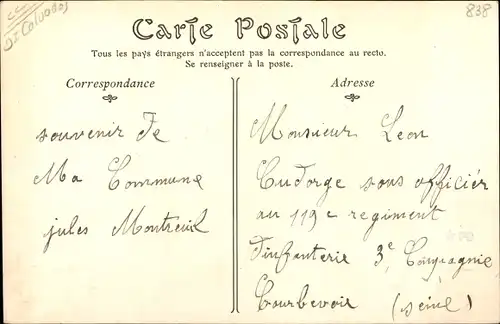 Dt Calvados
838
Carte Postale
Tous les pays étrangers n'acceptent pas la correspondance au recto.
Se renseigner à la poste.
Correspondance
souvenir de
Ma Commune
jules Montreuil
Adresse
Monsieur Leon
Cudorge sous officier
au 119e regiment
Dinfanterie 3e Compagnie
Courbevoie (seine)